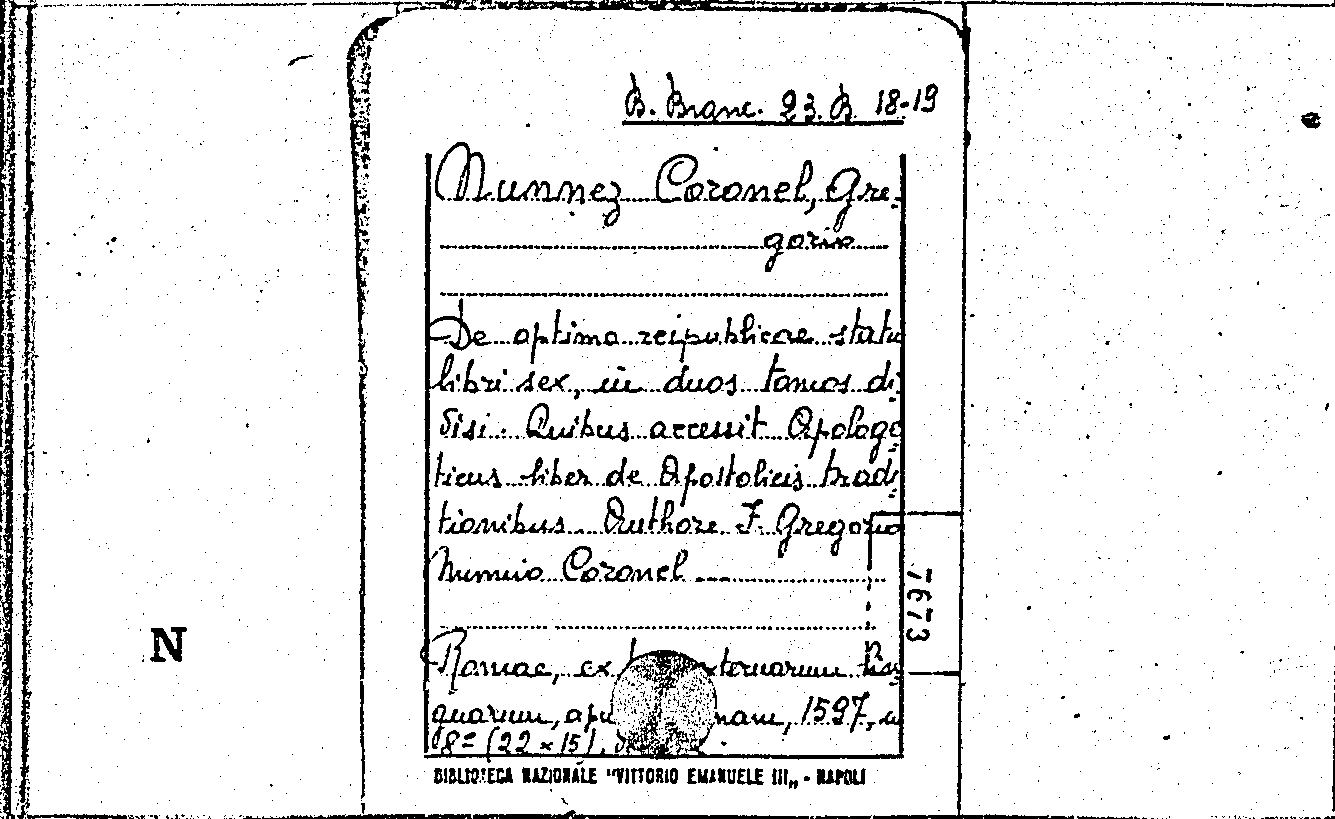 B. Branc. 23. B. 18-19
Nunnez Coronel, Gre-
gorio
De optimo reipublicae statu
libri sex, in duos tomos di-
visi. Quibus accessit Apologe-
ticus liber de Apostolicis tradi-
tionibus. Authore F. Gregorio
Nunnio Coronel ...
Romae, ex
quarum, 1597, in
8= (22 x 15).
7673
N
BIBLIOTECA NAZIONALE "VITTORIO EMANUELE III„ - NAPOLI